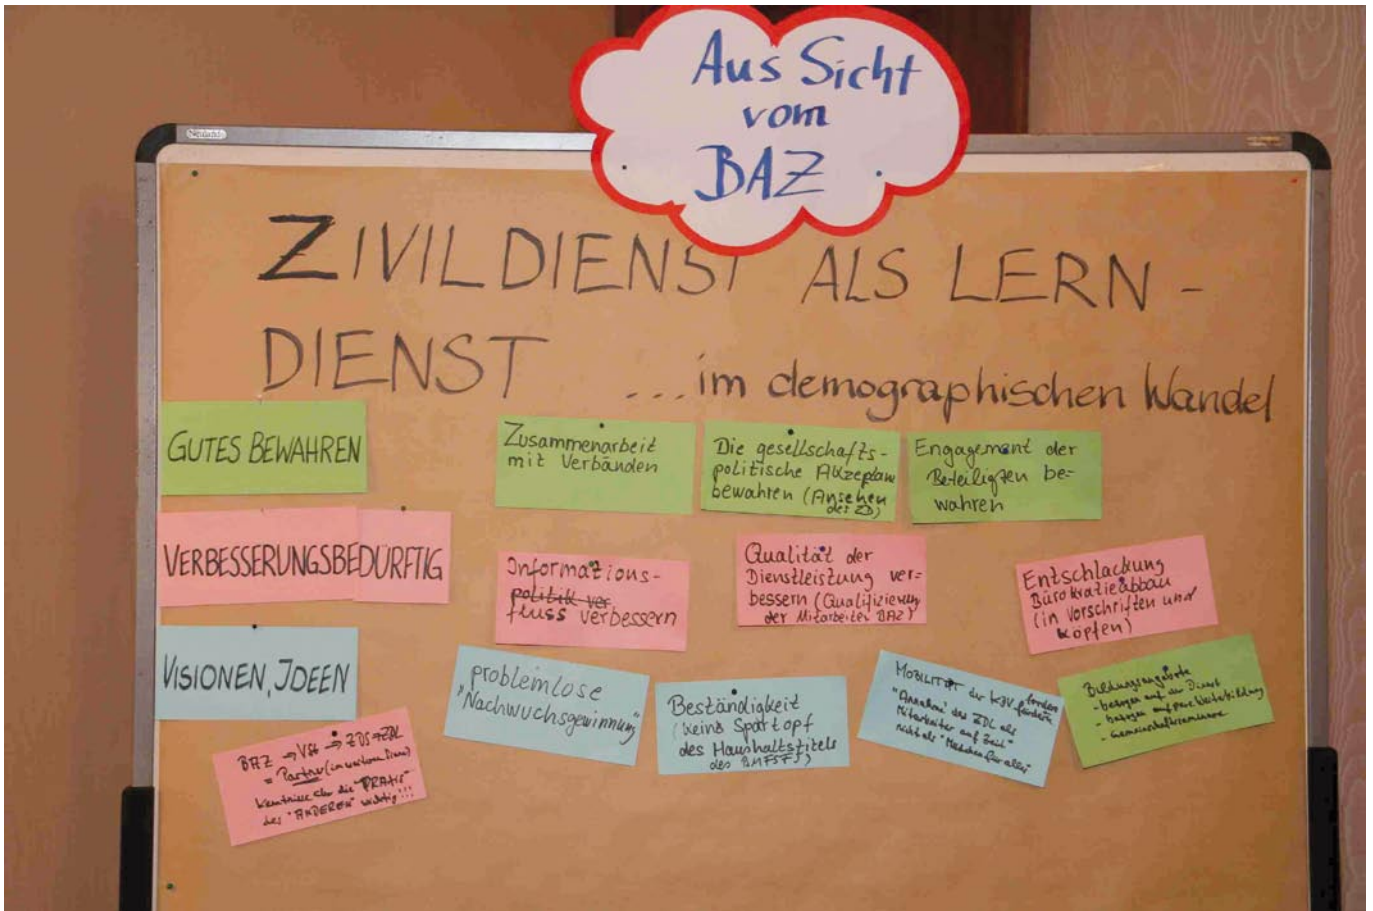 Neuland
Aus Sicht
vom
BAZ
ZIVILDIENST ALS LERN-
DIENST ...im demographischen Wandel
GUTES BEWAHREN
Zusammenarbeit
mit Verbänden
Die gesellschafts-
politische Akzeptanz
bewahren (Ansehen
des ZD)
Engagement der
Beteiligten be-
wahren
VERBESSERUNGSBEDÜRFTIG
Informations-
politik ver
fluss verbessern
Qualität der
Dienstleistung ver-
bessern (Qualifizierung
der Mitarbeiter BAZ)
Entschlackung
Bürokratieabbau
(in Vorschriften und
Köpfen)
VISIONEN, IDEEN
problemlose
"Nachwuchsgewinnung"
Beständigkeit
(keine Spartopf
des Haushaltstitels
des BMFSFJ)
MOBILITÄT der fördern
"Annahme" des ZDL als
Mitarbeiter auf Zeit"
nicht als "Mädchen für alles"
Bildungsangebote
- bezogen auf den Dienst
- bezogen auf Weiterbildung
- Gemeinschaftsseminare
BAZ → VSt → ZDS → ZDL
= Partner (im weiteren Sinne)
Kenntnisse über die "PRAXIS"
des "ANDEREN" wichtig!!!